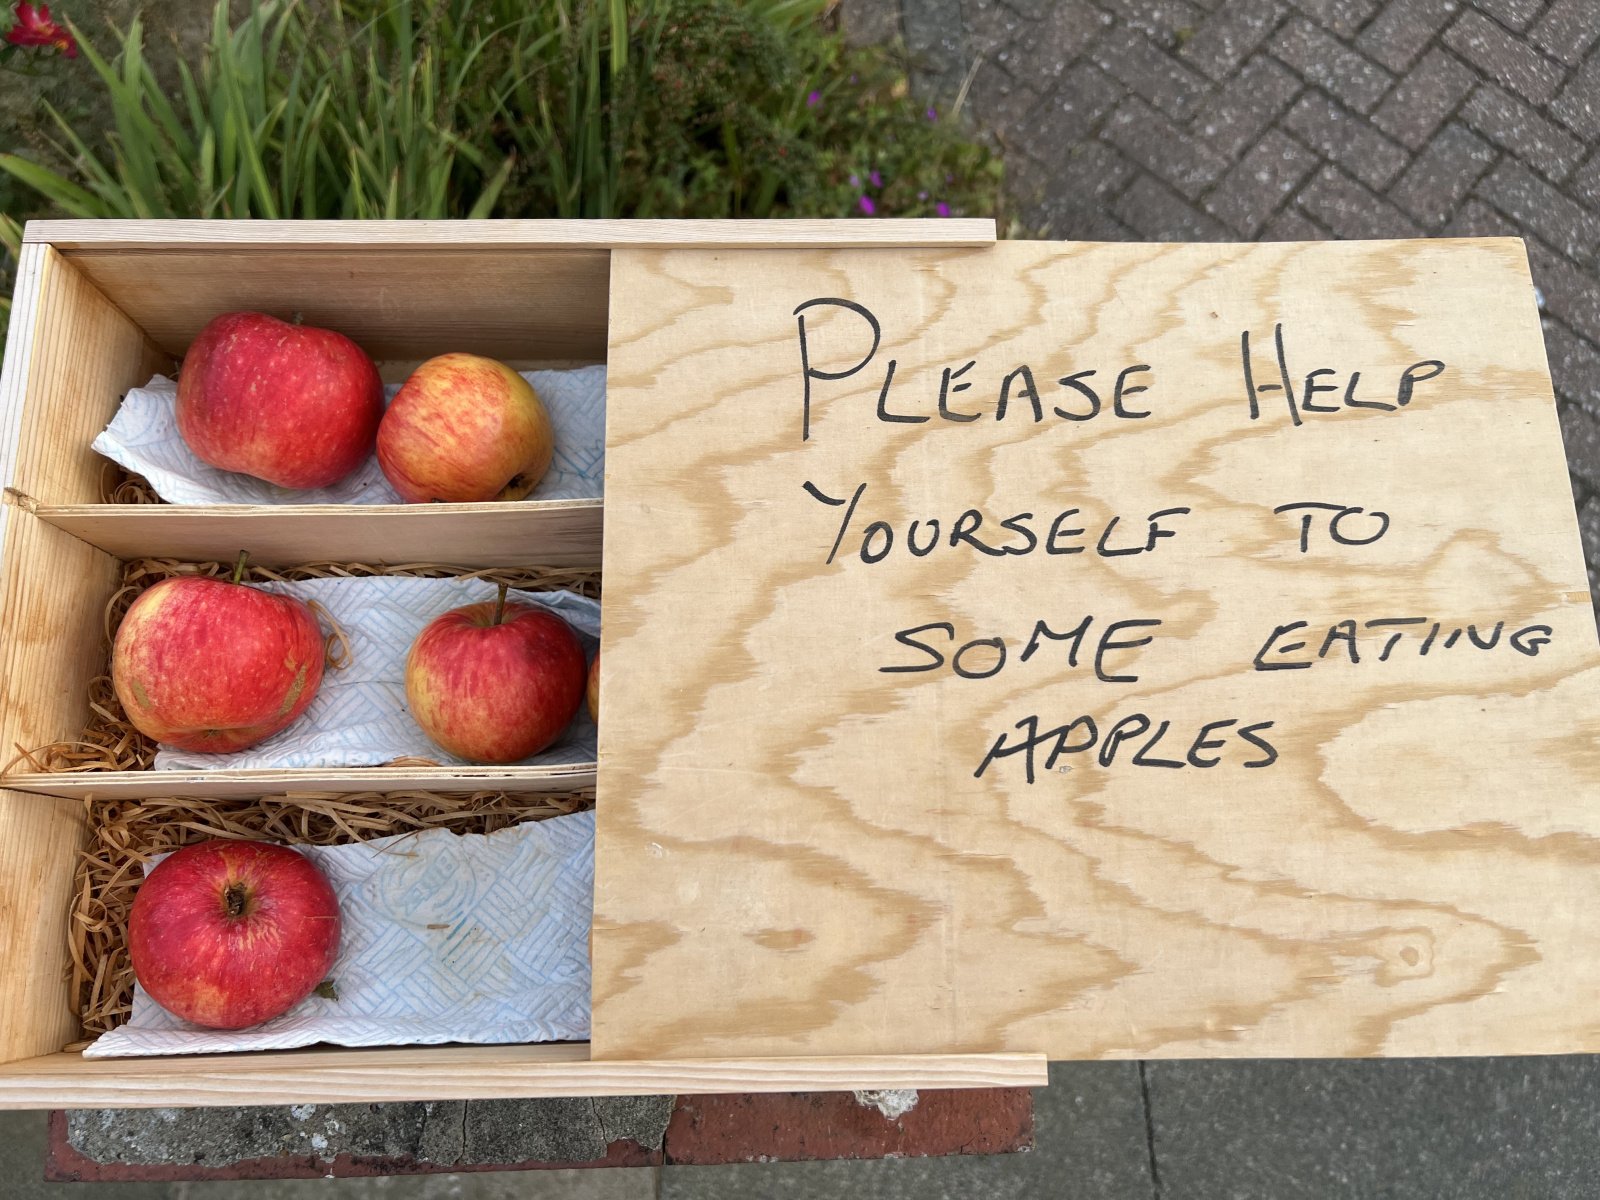 PLEASE HELP
YOURSELF TO
SOME EATING
APPLES